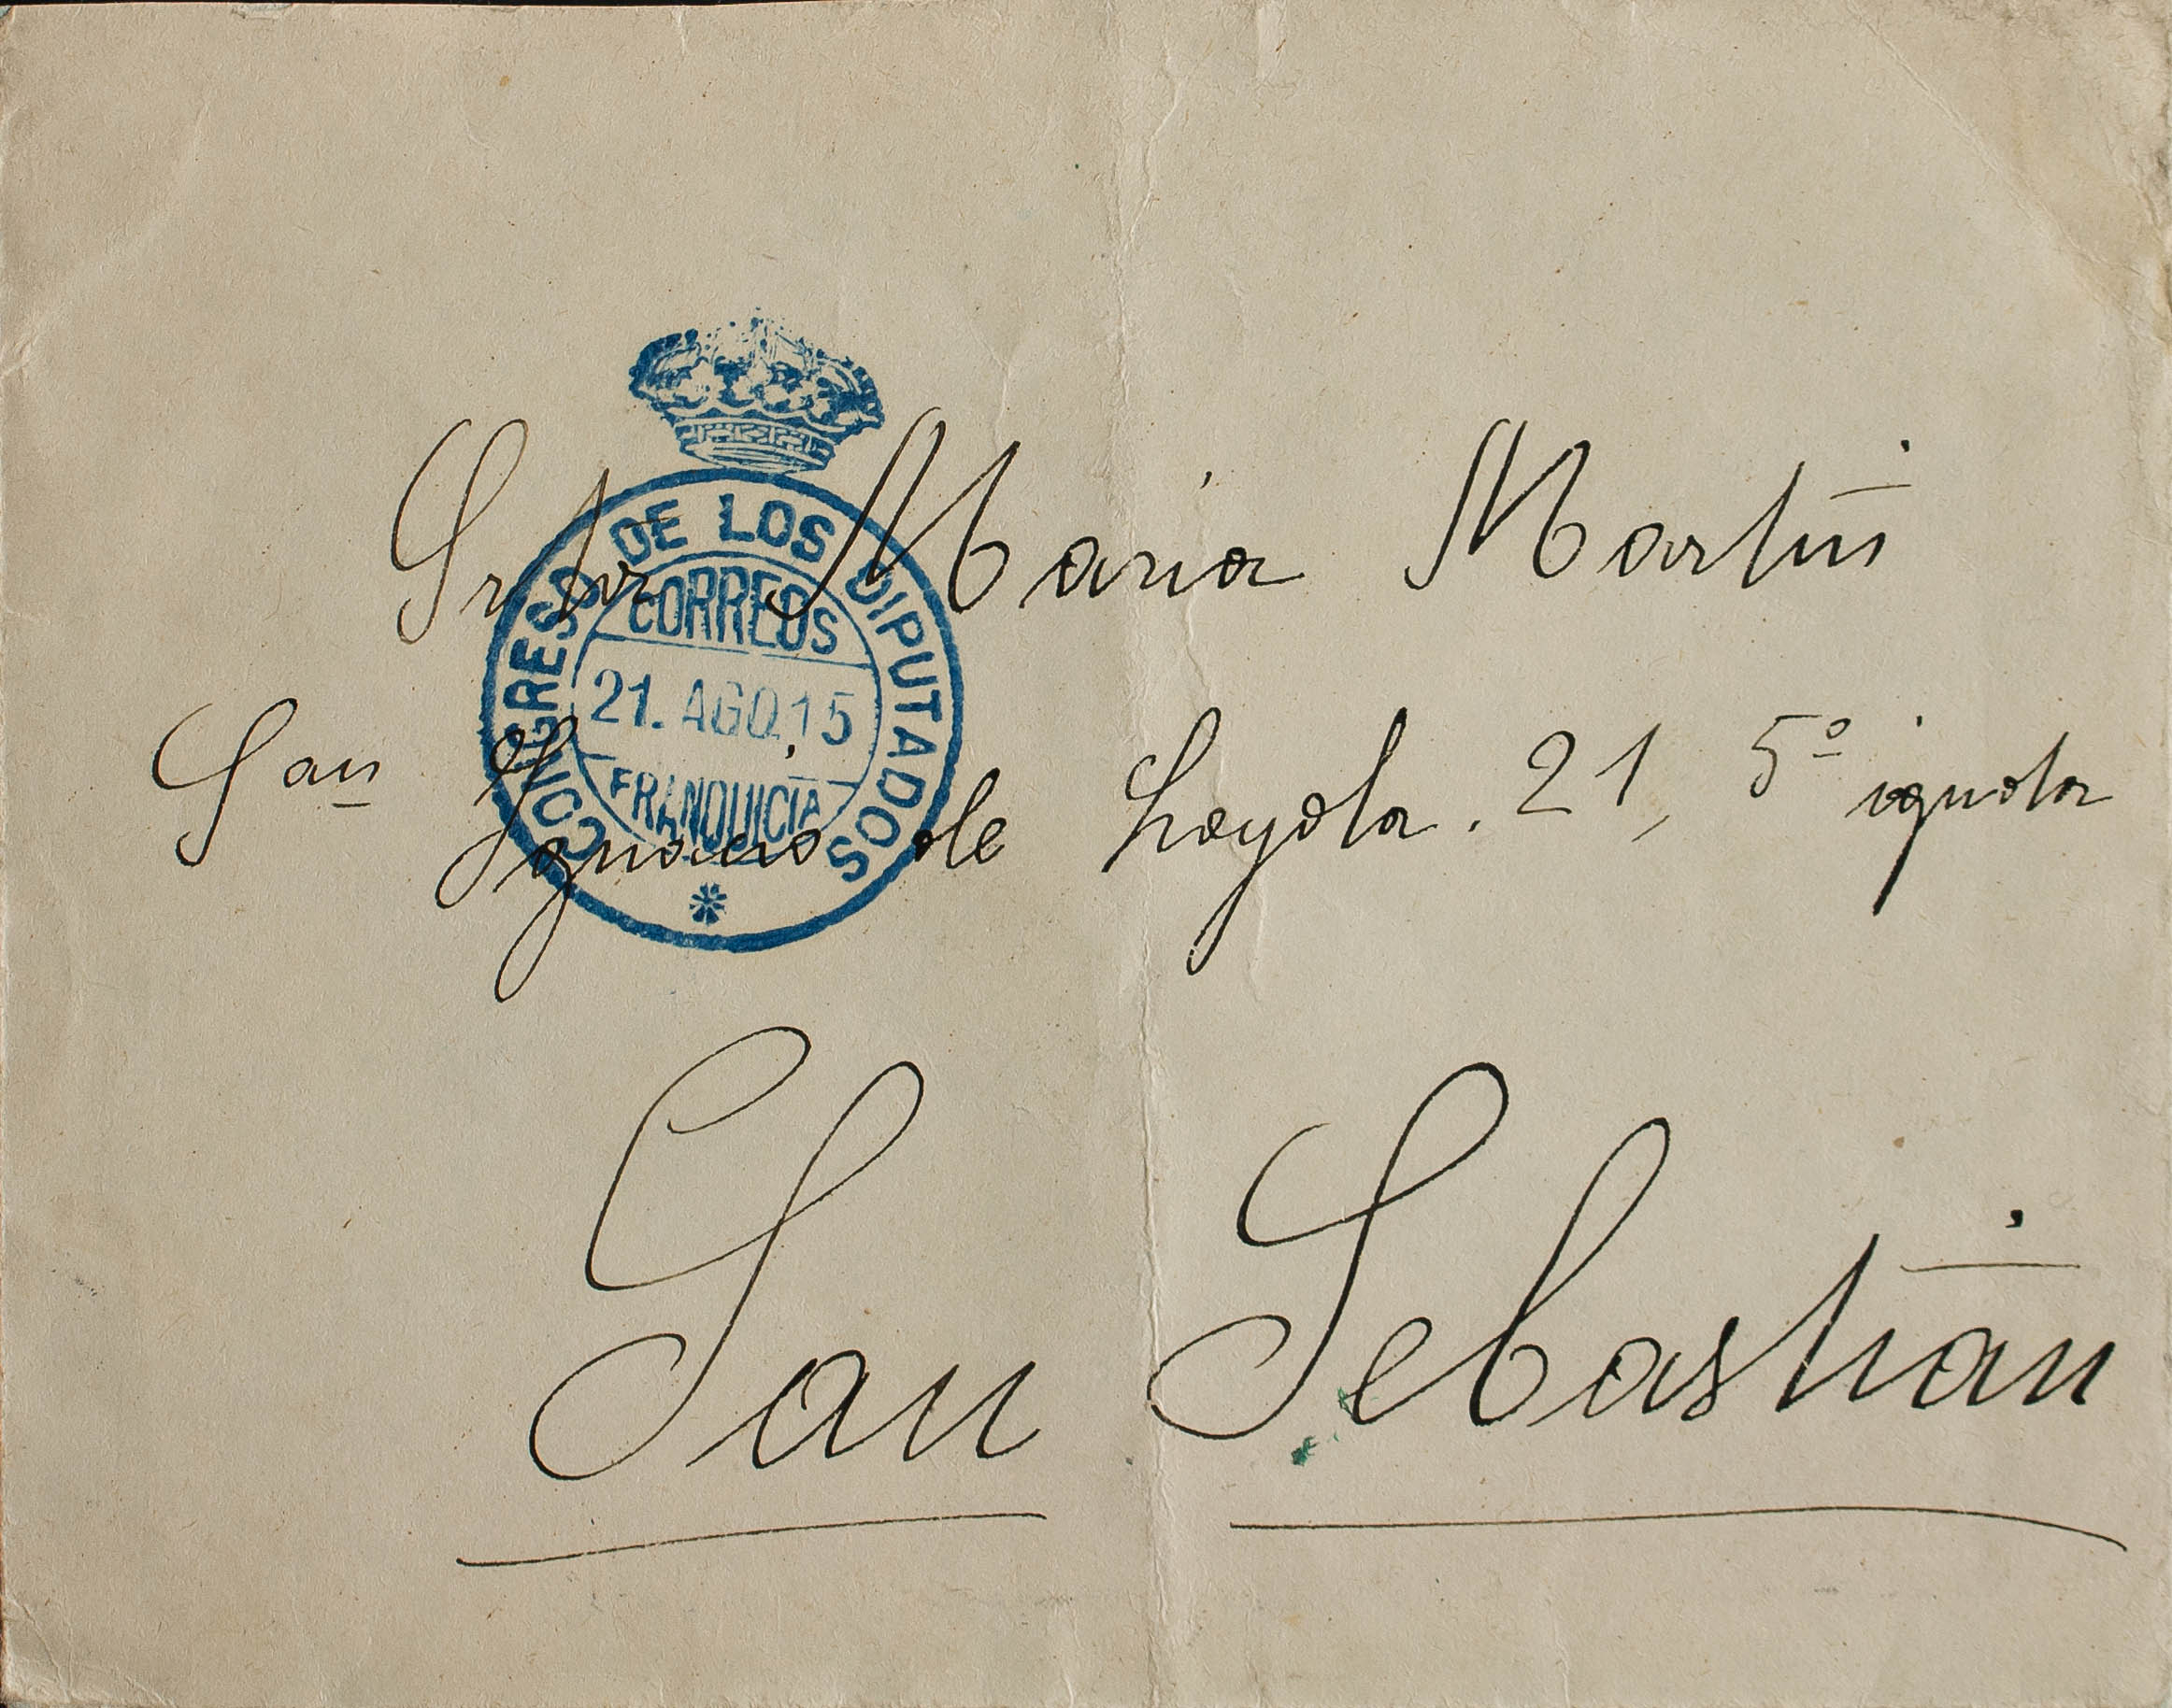 CONGRESO DE LOS DIPUTADOS
CORREOS
21. AGO. 15
FRANQUICIA
Srta Maria Martin
San Ignacio de Loyola. 21, 5º
San Sebastián